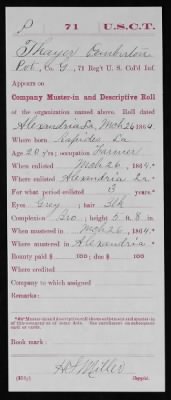 P 71 U.S.C.T.
Thayer Pemberton
Pvt, Co. G, 71 Reg't U. S. Col'd Inf.
Appears on
Company Muster-in and Descriptive Roll
of the organization named above. Roll dated
Alexandria La, Mch 26, 1864.
Where born Rapides La
Age 20 y'rs; occupation Farmer
When enlisted Mch 26, 1864.*
Where enlisted Alexandria La
For what period enlisted 3 years.*
Eyes Grey; hair Blk
Complexion Bro; height 5 ft. 8 in.
When mustered in Mch 26, 1864.*
Where mustered in Alexandria *
Bounty paid $ 100; due $ 100
Where credited
Company to which assigned
Remarks:
*See Muster-in and Descriptive roll shows enlistment and muster-in
of this company as of same date. See enrollment on subsequent
card or cards.
Book mark:
Miller
Copyist.